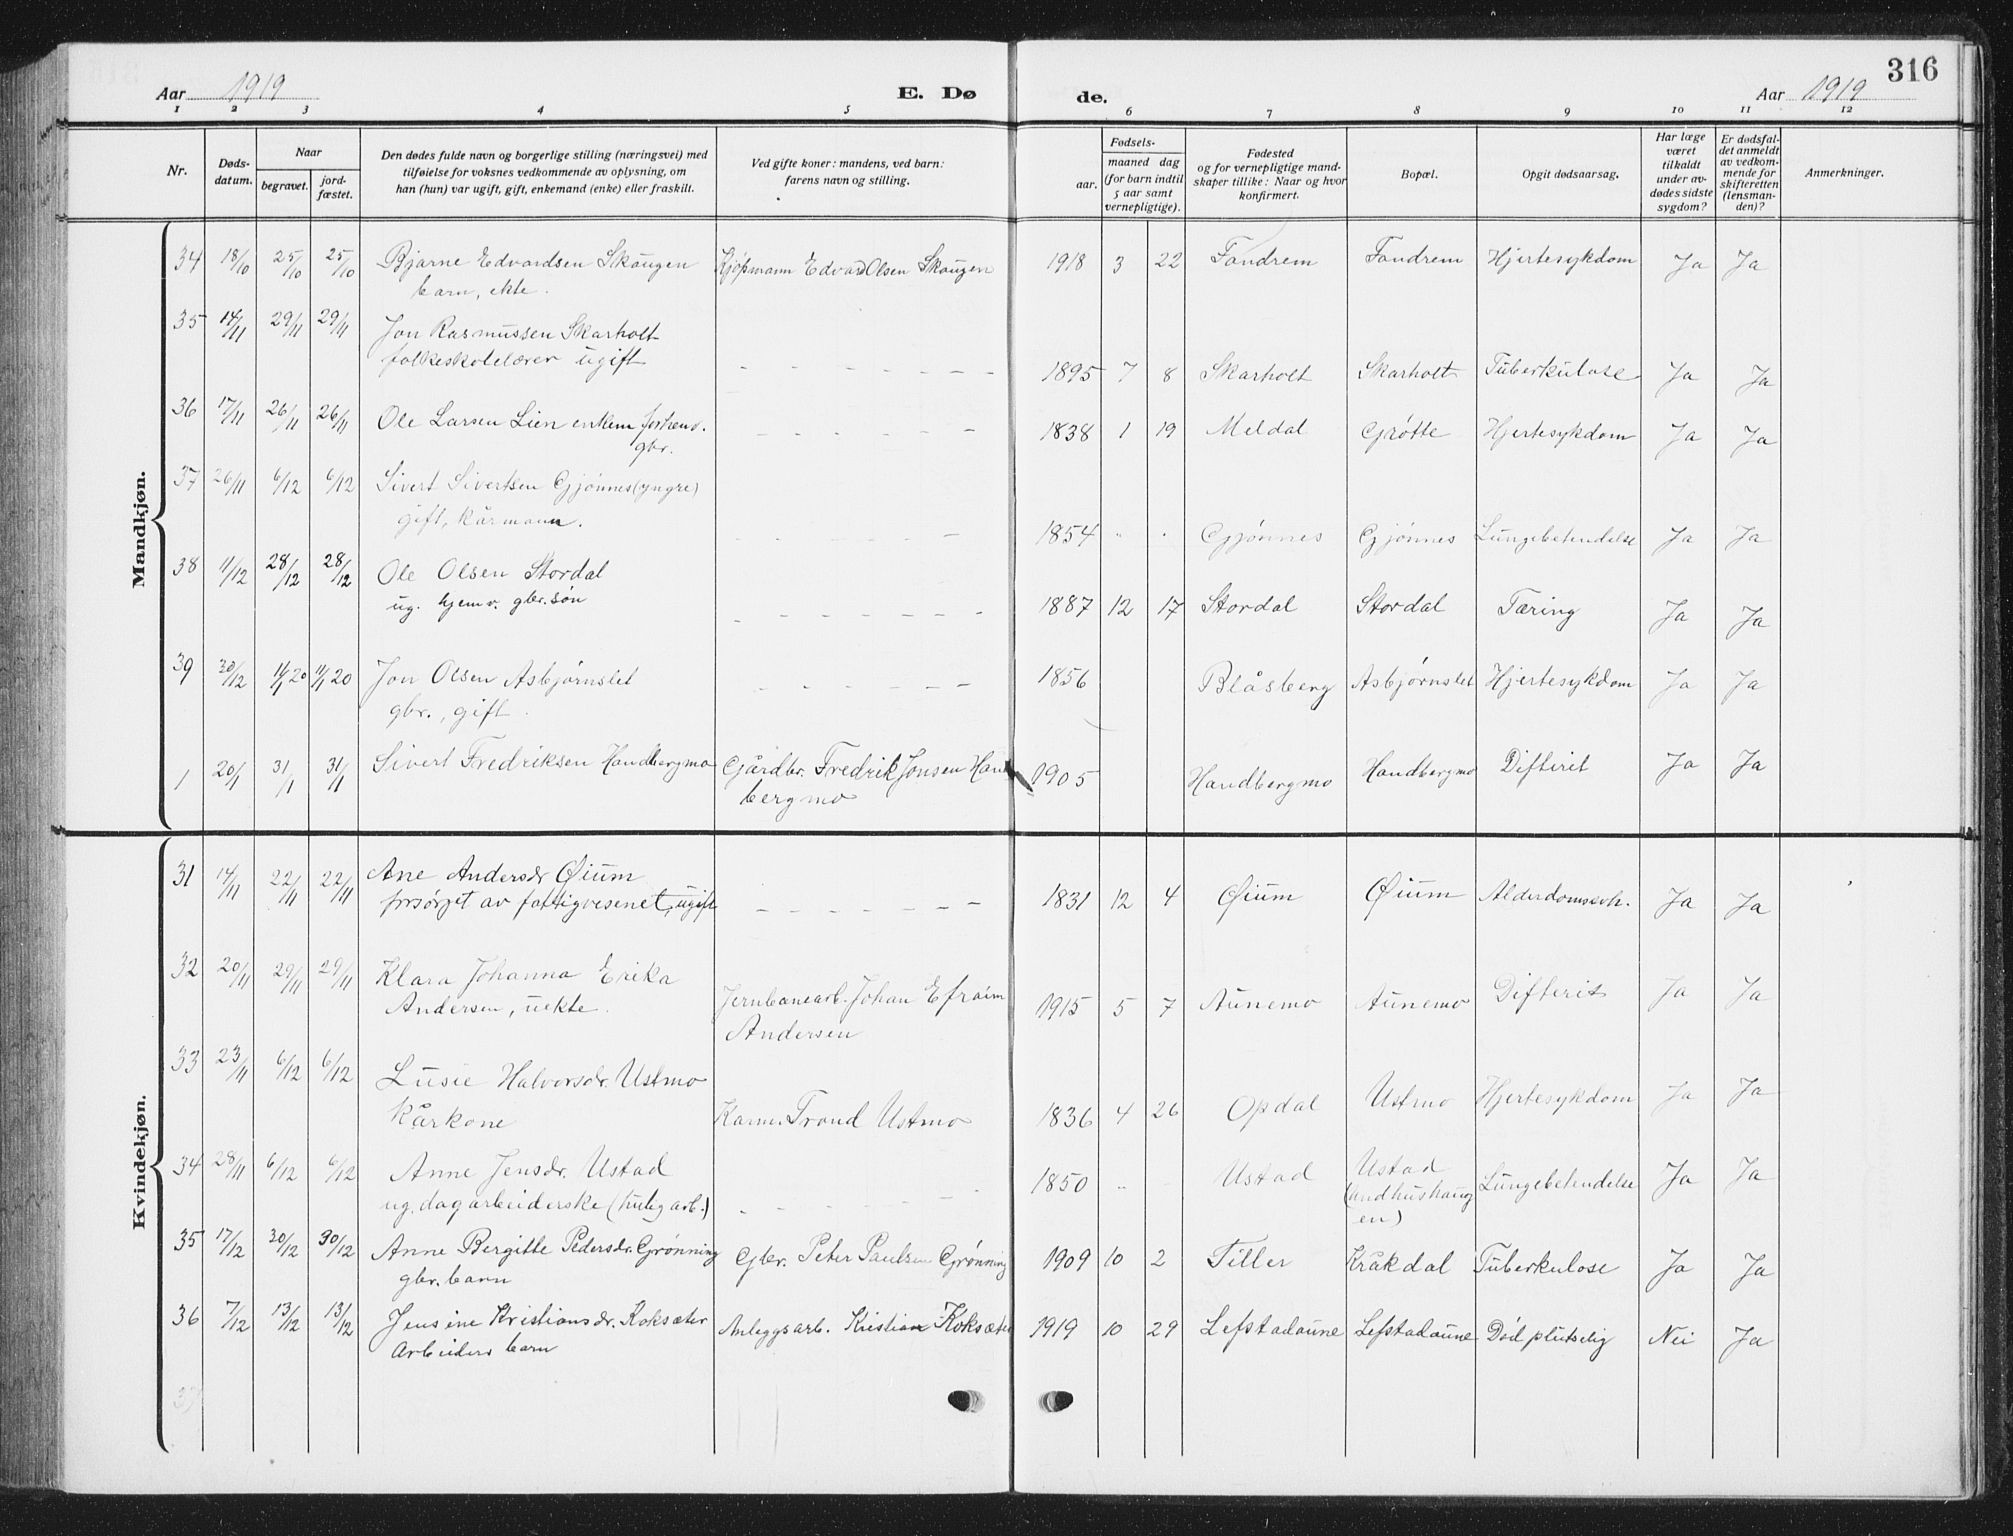 316
Aar 1919 E. Dø de. Aar 1919
1 2 3 4 5 6 7 8 9 10 11 12
Nr.
Døds-
datum.
Naar
begravet.
jord-
fæstet.
Den dødes fulde navn og borgerlige stilling (næringsvei) med
tilføielse for voksnes vedkommende av oplysning, om
han (hun) var ugift, gift, enkemand (enke) eller fraskilt.
Ved gifte koner: mandens, ved barn:
farens navn og stilling.
Fødsels-
aar.
maaned dag
(for barn indtil
5 aar samt
vernepligtige).
Fødested
og for vernepligtige mand-
skaper tillike: Naar og hvor
konfirmert.
Bopæl.
Opgit dødsaarsag.
Har læge
været
tilkaldt
under av-
dødes sidste
sygdom?
Er dødsfal-
det anmeldt
av vedkom-
mende for
skifteretten
(lensman-
den)?
Anmerkninger.
Mandkjøn.
34 18/10 25/10 25/10 Bjarne Edvardsen Skaugen Kjøpmann Edvard Olsen Skaugen 1918 3 22 Fandrem Fandrem Hjertesykdom Ja Ja
barn, ekte.
35 14/11 29/11 29/11 Jon Rasmussen Skarholt
folkeskolelærer ugift 1895 7 8 Skarholt Skarholt Tuberkulose Ja Ja
36 17/11 26/11 26/11 Ole Larsen Lien enkem. forhenv. 1838 1 19 Meldal Grøtte Hjertesykdom Ja Ja
gbr.
37 26/11 6/12 6/12 Sivert Sivertsen Gjønnes (yngre)
gift, kårmann. 1854 " " Gjønnes Gjønnes Lungebetendelse Ja Ja
38 11/12 28/12 28/12 Ole Olsen Stordal
ug. hjemv. gbr. søn 1887 12 17 Stordal Stordal Tæring Ja Ja
39 30/12 11/1 20 11/1 20 Jon Olsen Asbjørnslet 1856 Blåsberg Asbjørnslet Hjertesykdom Ja Ja
gbr., gift.
1 20/1 31/1 31/1 Sivert Fredriksen Handbergmo Gårdbr. Fredrik Jonsen Hand 1905 Handbergmo Handbergmo Difterit Ja Ja
bergmo
Kvindekjøn.
31 14/11 22/11 22/11 Ane Andersdr Øium
forsørget av fattigvesenet, ugift 1831 12 4 Øium Øium Alderdomssvk. Ja Ja
32 20/11 29/11 29/11 Klara Johanna Erika
Andersen, uekte. Jernbanearb. Johan Efraim 1915 5 7 Aunemo Aunemo Difterit Ja Ja
Andersen
33 23/11 6/12 6/12 Lusie Halvorsdr. Ustmo
Kårkone Karm. Trond Ustmo 1836 4 26 Opdal Ustmo Hjertesykdom Ja Ja
34 28/11 6/12 6/12 Anne Jensdr. Ustad 1850 " Ustad Ustad Lungebetendelse Ja Ja
ug. dagarbeiderske
en)
35 17/12 30/12 30/12 Anne Bergitte Pedersdr. Grønning Gbr. Peter Paulsen Grønning 1909 10 2 Tiller Kråkdal Tuberkulose Ja Ja
gbr. barn
36 7/12 13/12 13/12 Jensine Kristiansdr. Koksæter Anleggsarb. Kristian Koksæter 1919 10 29 Lefstadaune Lefstadaune Død plutselig Nei Ja
Arbeiders barn
37